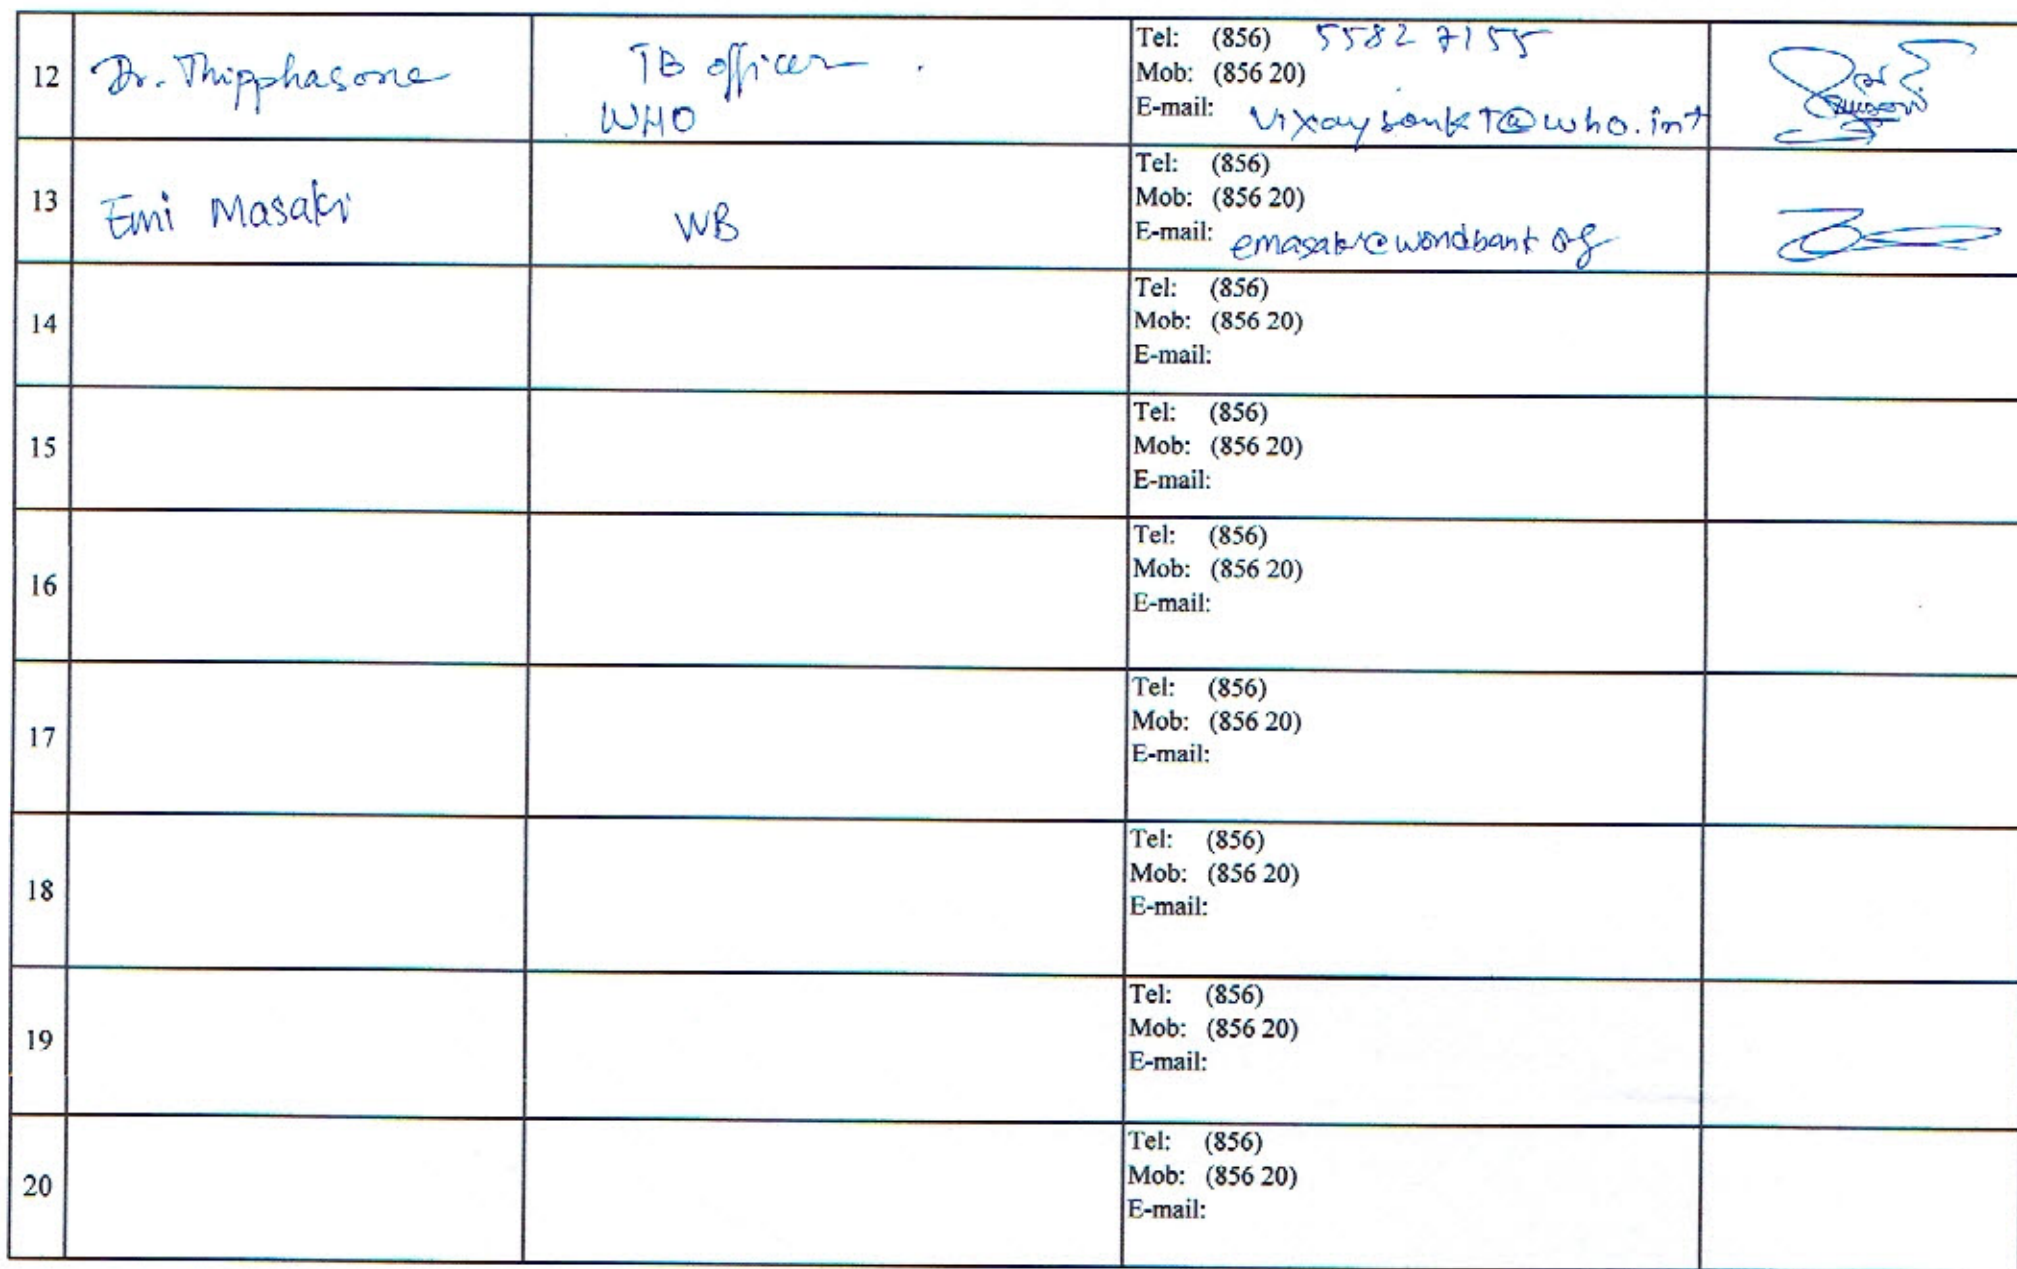 12 Dr. Thipphasone TB officer WHO Tel: (856) 5582 7155
Mob: (856 20)
E-mail: vixaysonkT@who.int
13 Emi Masaki WB Tel: (856)
Mob: (856 20)
E-mail: emasaki@worldbank.org
14 Tel: (856)
Mob: (856 20)
E-mail:
15 Tel: (856)
Mob: (856 20)
E-mail:
16 Tel: (856)
Mob: (856 20)
E-mail:
17 Tel: (856)
Mob: (856 20)
E-mail:
18 Tel: (856)
Mob: (856 20)
E-mail:
19 Tel: (856)
Mob: (856 20)
E-mail:
20 Tel: (856)
Mob: (856 20)
E-mail: